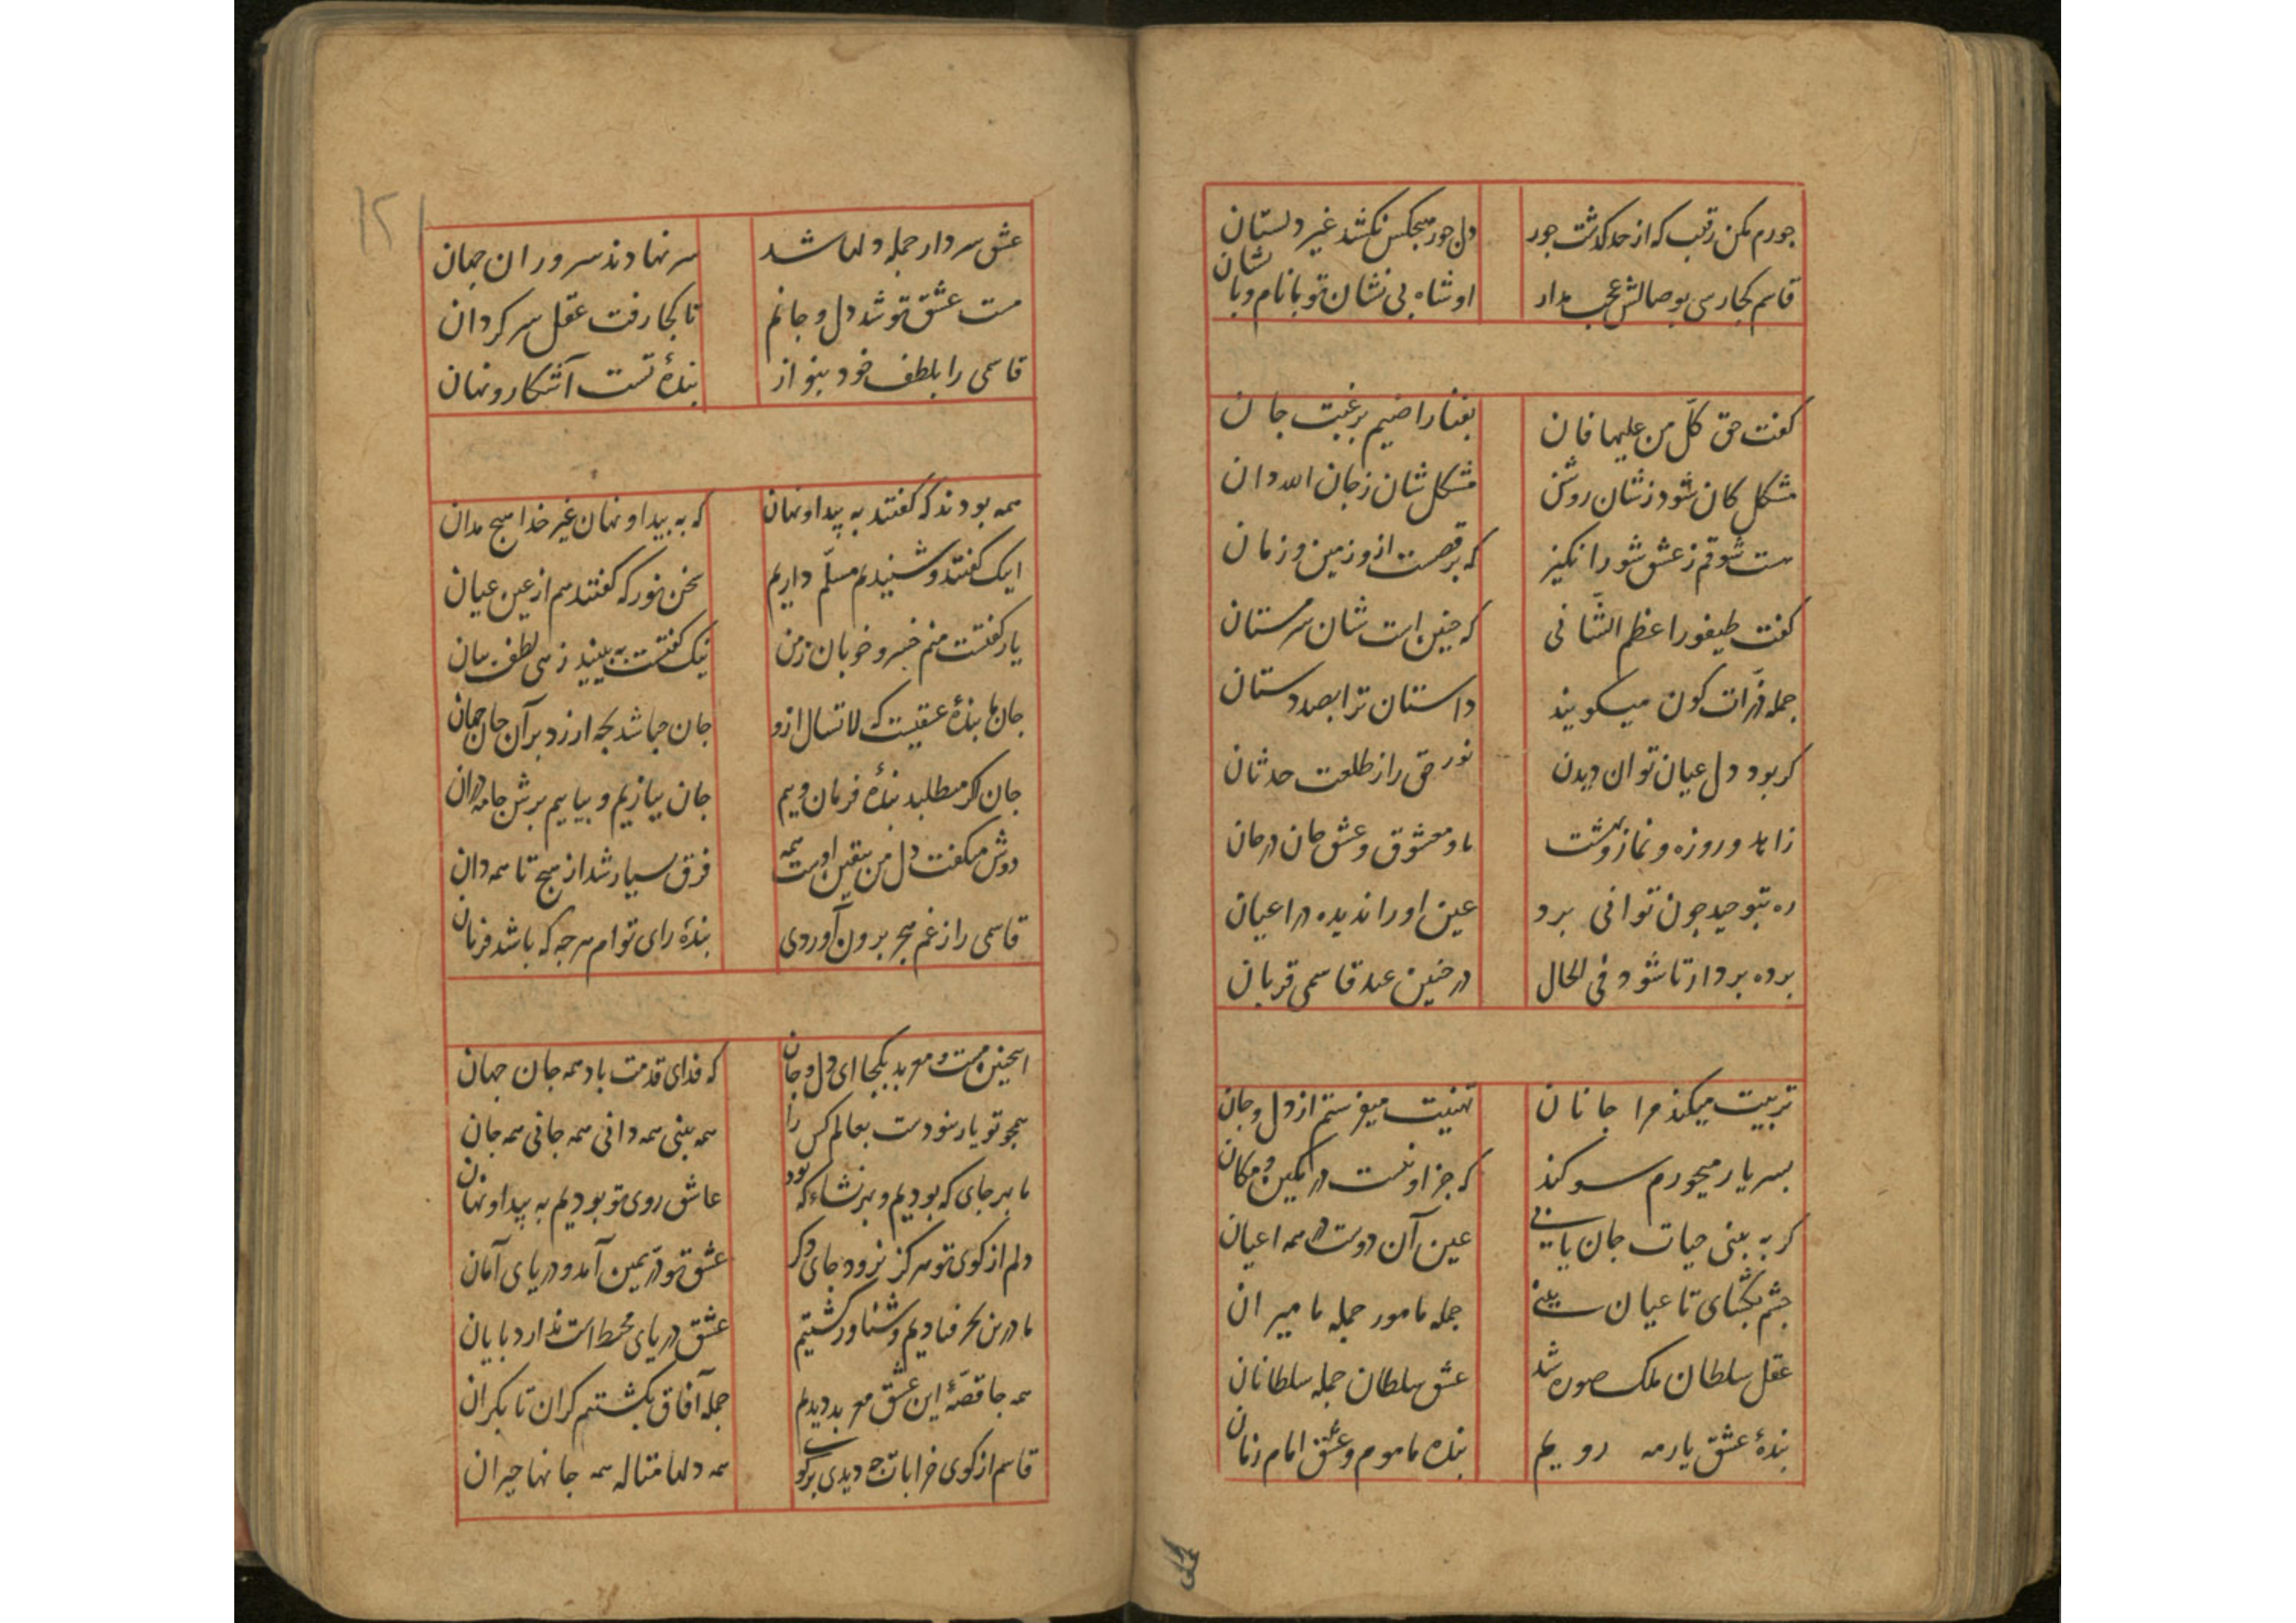 جورم مکن رقیب که از حد گذشت جور
دل جور هیچکس نکشد غیر دلستان
قاسم کجا رسی بوصالش عجب مدار
او شاه بی نشان تو با نام و با نشان
گفت حق کلّ من علیها فان
بفنا راضیم برغبت جان
مشکل کان شود زشان روشن
مشکل شان زجان الله دان
مست شوقم ز عشق شورانگیز
که برقصست ازو زمین و زمان
گفت طیفور اعظم الشّانی
که چنین است شان سرمستان
جمله ذرّات کون میگویند
داستان ترا بصد دستان
گر بود دل عیان توان دیدن
نور حق را ز طلعت حدثان
زاهد و روزه و نماز و بهشت
ما و معشوق و عشق جان در جان
ره بتوحید چون توانی برد
عین او را ندیده در اعیان
پرده بردار تا شود فی الحال
در چنین عید قاسمی قربان
تربیت میکند مرا جانان
تهنیت میفرستم از دل و جان
بسر یار میخورم سوگند
که جز او نیست در مکین و مکان
گر به بینی حیات جان یابی
عین آن دوست در همه اعیان
چشم بگشای تا عیان بینی
جمله مامور جمله میران
عقل سلطان ملک صورت شد
عشق سلطان جمله سلطانان
بندهٔ عشق یار مه رویم
بنده ماموم و عشق امام زمان
۱۲۱
عشق سردار جمله دلها شد
سر نهادند سروران جهان
مست عشق تو شد دل و جانم
تا کجا رفت عقل سرگردان
قاسمی را بلطف خود بنواز
بندهٔ تست آشکار و نهان
همه بودند که گفتند به پیدا و نهان
که به پیدا و نهان غیر خدا هیچ مدان
اینک گفتند و شنیدیم مسلّم داریم
سخن نور که گفتند هم از عین عیان
یار گفتست منم خسرو خوبان زمن
نیک گفتست به بینید زهی لطف بیان
جان ما بندهٔ عشقیست که لا تسال ازو
جان چباشد بچه ارزد بر آن جان جهان
جان اگر میطلبد بندهٔ فرمان ویم
جان ببازیم و بیاییم برش جامه دران
دوش میگفت دل من بیقین اوست همه
فرق بسیار شد از هیچ تا همه دان
قاسمی را ز غم هجر برون آوردی
بندهٔ رای توام هرچه که باشد فرمان
اینچنین مست و معربد بکجا ای دل و جان
که فدای قدمت باد همه جان جهان
همچو تو یار نبودست بعالم کس را
همه بینی همه دانی همه جانی همه جان
ما بهر جای که بودیم و بهر نشاء که بود
عاشق روی تو بودیم به پیدا و نهان
دلم از کوی تو هرگز نرود جای دگر
عشق تو درّ یمین آمد و دریای آمان
ما درین بحر فتادیم و شناور گشتیم
عشق دریای محیط است ندارد پایان
همه جا قصّهٔ این عشق معربد دیدیم
جمله آفاق بگشتیم کران تا بکران
قاسم از کوی خرابات چه دیدی برگوی
همه دلها متاله همه جانها حیران